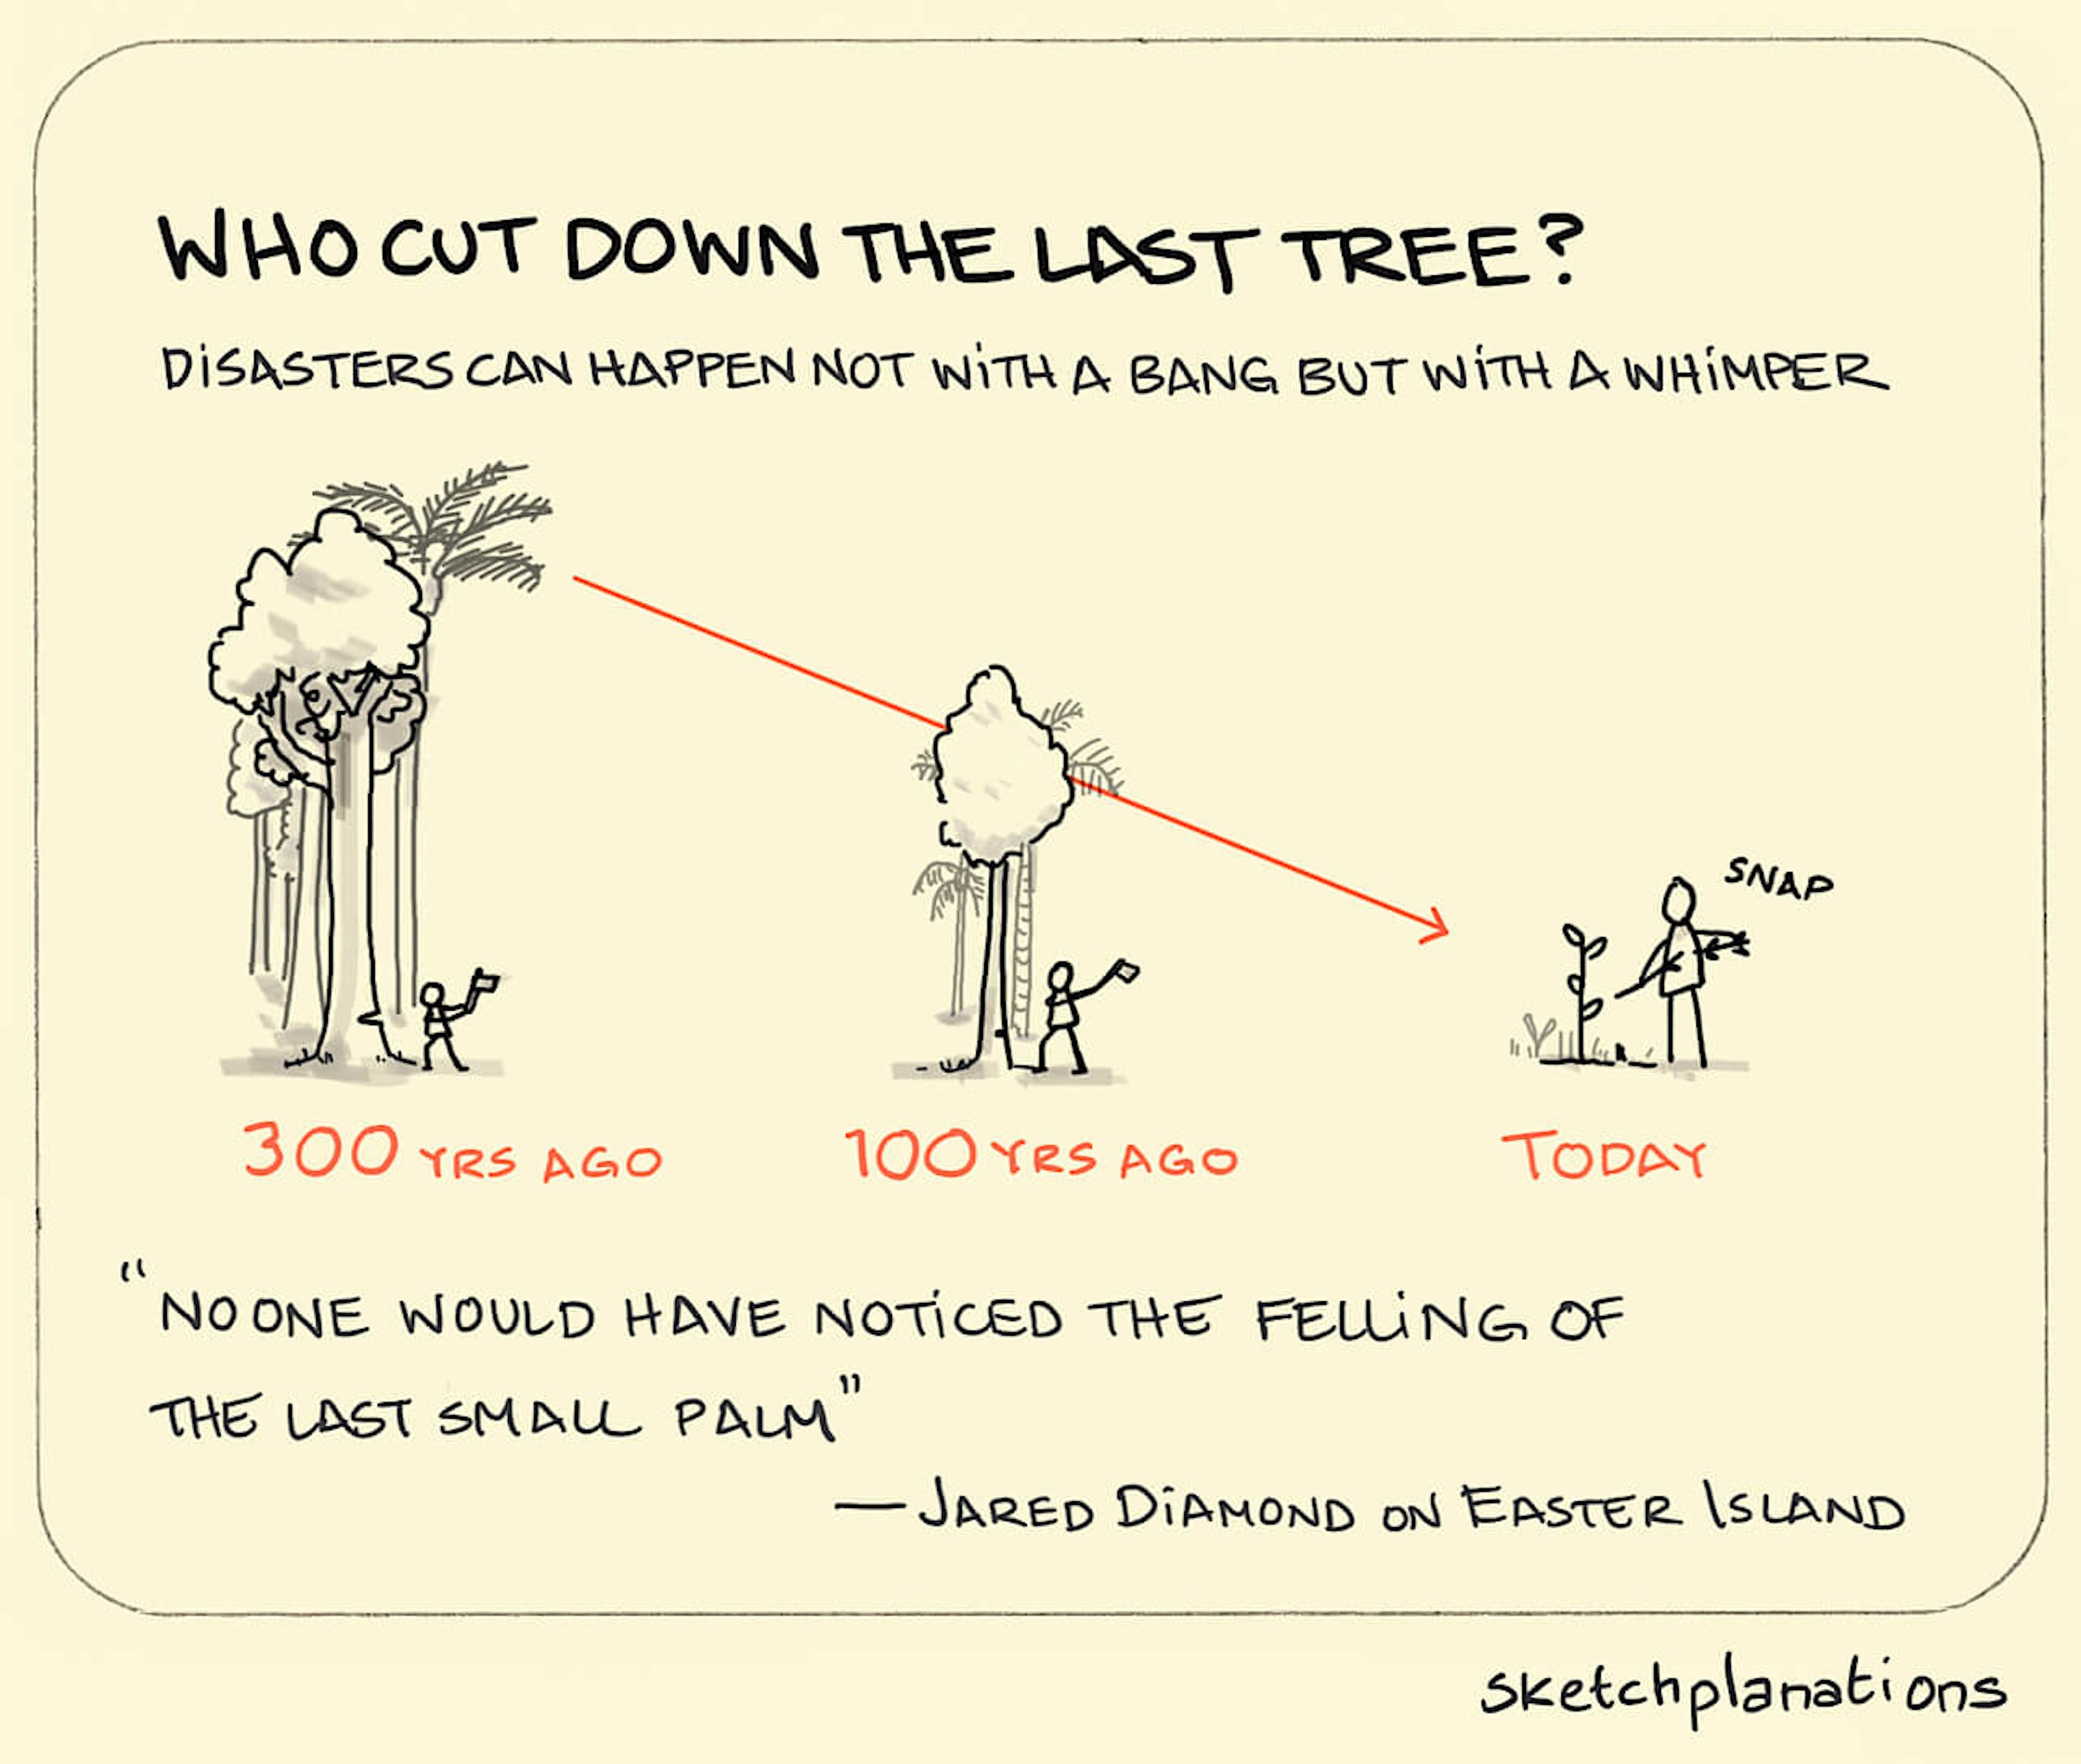 WHO CUT DOWN THE LAST TREE?
DiSASTERS CAN HAPPEN NOT WiTH A BANG BUT WiTH A WHiMPER
SNAP
300 YRS AGO
100 YRS AGO
TODAY
"NO ONE WOULD HAVE NOTiCED THE FELLiNG OF
THE LAST SMALL PALM"
— JARED DiAMOND ON EASTER ISLAND
sketchplanations